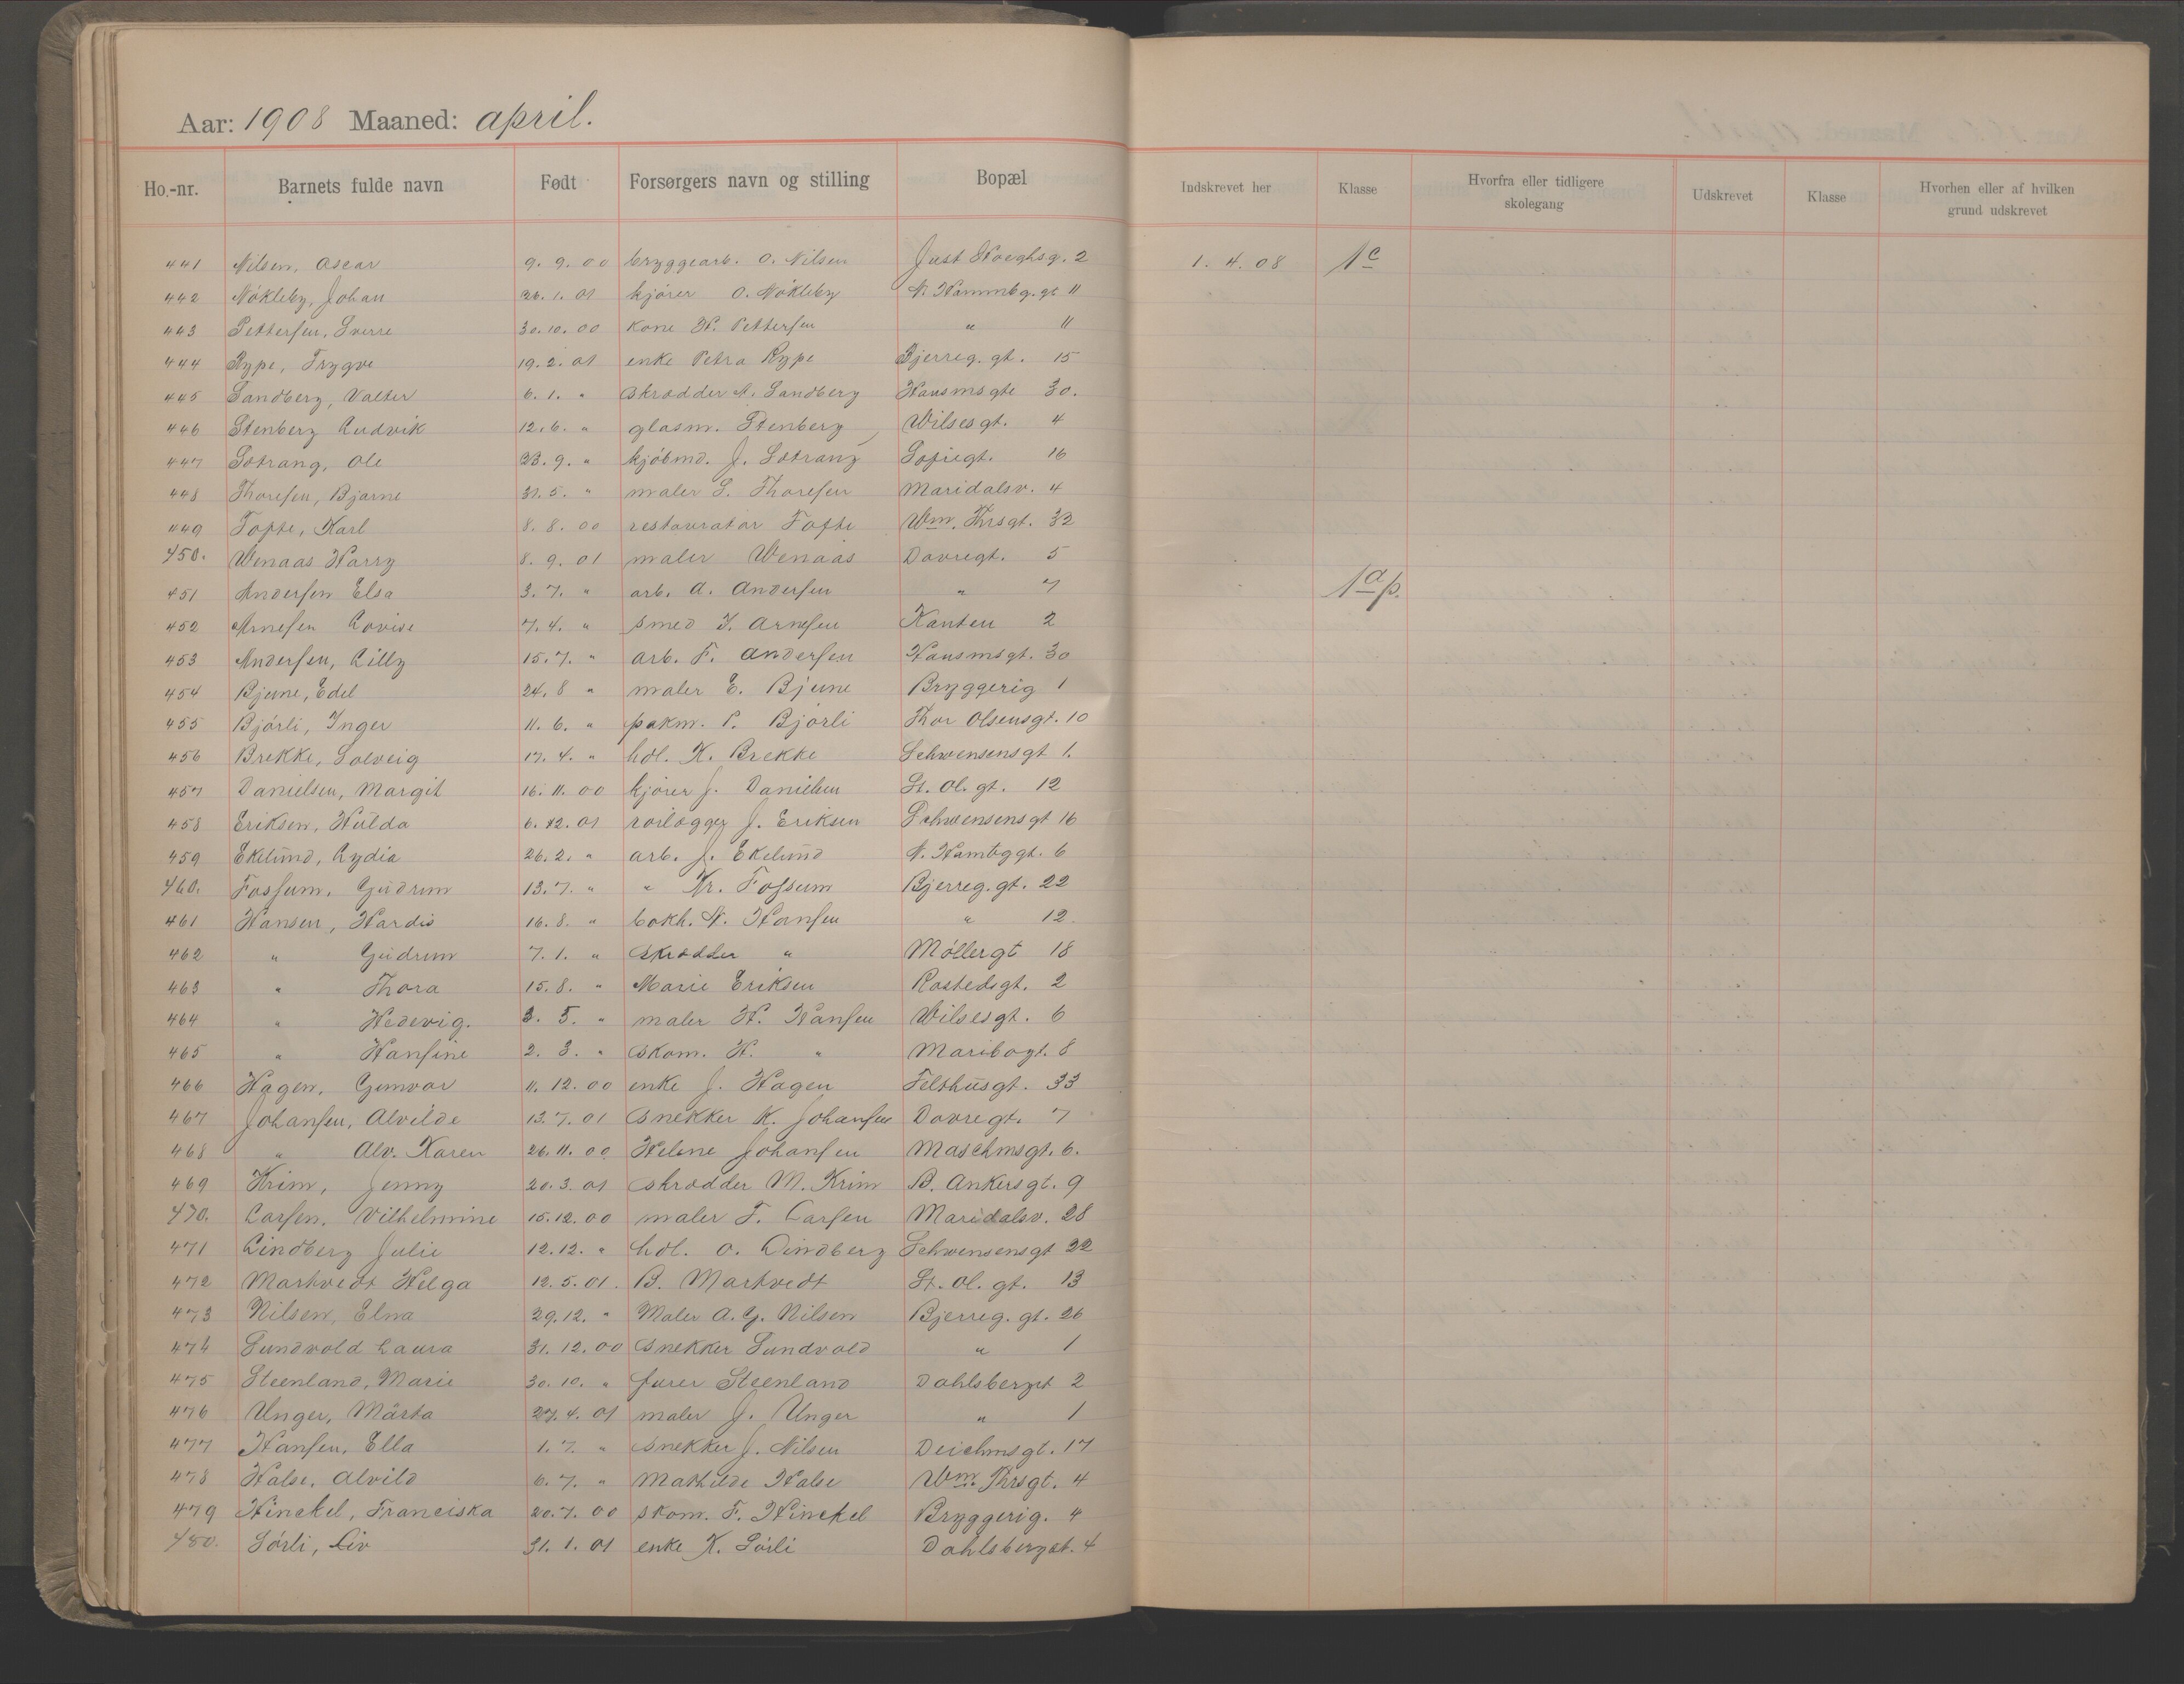 Aar: 1908 Maaned: april.
Ho.-nr. Barnets fulde navn Født Forsørgers navn og stilling Bopæl Indskrevet her Klasse Hvorfra eller tidligere skolegang Udskrevet Klasse Hvorhen eller af hvilken grund udskrevet
441 Nilsen, Oscar 9. 9. 00 bryggearb. O. Nilsen Just Høeghsg. 2 1. 4. 08 1c
442 Nökleby, Johan 26. 1. 01 kjører O. Nökleby N. Hammbg. gt 11
443 Pettersen, Sverre 30. 10. 00 kone H. Pettersen " 11
444 Rype, Trygve 19. 2. 01 enke Petra Rype Bjerreg. gt. 15
445 Sandberg, Valter 6. 1. " skrædder A. Sandberg Hausmsgte 30.
446 Stenberg Ludvik 12. 6. " glasm. Stenberg Wilsesgt. 4
447 Sotrang, Ole 23. 9. " kjöbmd. J. Sotrang Sofiegt. 16
448 Thoresen, Bjarne 31. 5. " maler S. Thoresen Maridalsv. 4
449 Tofte, Karl 8. 8. 00 restauratør Tofte Wm. Thrsgt. 32
450. Wenaas Harry 8. 9. 01 maler Wenaas Dovregt. 5
451 Andersen Elsa 3. 7. " arb. A. Andersen " 7 1a p.
452 Arnesen Lovise 7. 4. " smed I. Arnesen Kanten 2
453 Andersen, Lilly 15. 7. " arb. F. Andersen Hausmsgt. 30
454 Bjune, Edel 24. 8 " maler E. Bjune Bryggerig 1
455 Bjórli, Inger 11. 6. " pakm. P. Bjórli Thor Olsensgt. 10
456 Brekke, Solveig 17. 4. " hdl. K. Brekke Schwensensgt 1.
457 Danielsen, Margit 16. 11. 00 kjører J. Danielsen St. Ol. gt. 12
458 Eriksen, Hulda 6. 12. 01 rørlægger J. Eriksen Schwensensgt 16
459 Ekelund, Lydia 26. 2. " arb. J. Ekelund N. Hambggt. 6
460. Fossum, Gudrun 13. 7. " " Kr. Fossum Bjerreg. gt. 22
461 Hansen, Hardis 16. 8. " bokh. N. Hansen " 12
462 " Gudrun 7. 1. " skrædder " Möllergt 18
463 " Thora 15. 8. " Marie Eriksen Rostedsgt. 2
464 " Hedevig. 3. 5. " maler H. Hansen Wilsesgt. 6
465 " Hansine 2. 3. " skom. H. " Maribogt. 8
466 Hagen, Gunvor 11. 12. 00 enke J. Hagen Telthusgt. 33
467 Johansen, Alvilde 13. 7. 01 snekker K. Johansen Dovregt. 7
468 " Alv. Karen 26. 11. 00 Helene Johansen Maschmsgt. 6.
469 Krim, Jenny 20. 3. 01 skrædder M. Krim B. Ankersgt. 9
470. Larsen, Vilhelmine 15. 12. 00 maler T. Larsen Maridalsv. 28
471 Lindberg Julie 12. 12. " hdl. O. Lindberg Schwensensgt 22
472 Markvedt Helga 12. 5. 01. B. Markvedt St. Ol. gt. 13
473 Nilsen, Elna 29. 12. " Maler A. G. Nilsen Bjerreg. gt. 26
474 Sundvold Laura 31. 12. 00 snekker Sundvold " 1
475 Steenland, Marie 30. 10. " fører Steenland Dahlsbergst 2
476 Unger, Märta 27. 4. 01 maler J. Unger " 1
477 Hansen, Ella 1. 7. " snekker J. Nilsen Deichmsgt. 17
478 Halse, Alvild 6. 7. " Mathilde Halse Wm. Thrsgt. 4
479 Hinckel, Franciska 20. 7. 00 skom. F. Hinckel Bryggerig. 4
480. Sörli, Liv 31. 1. 01 enke K. Sörli Dahlsbergst. 4